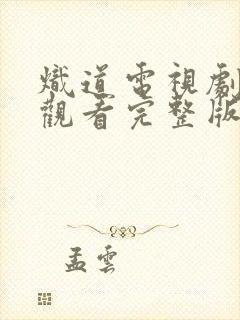 熾道電視劇
觀看完整版
孟雲